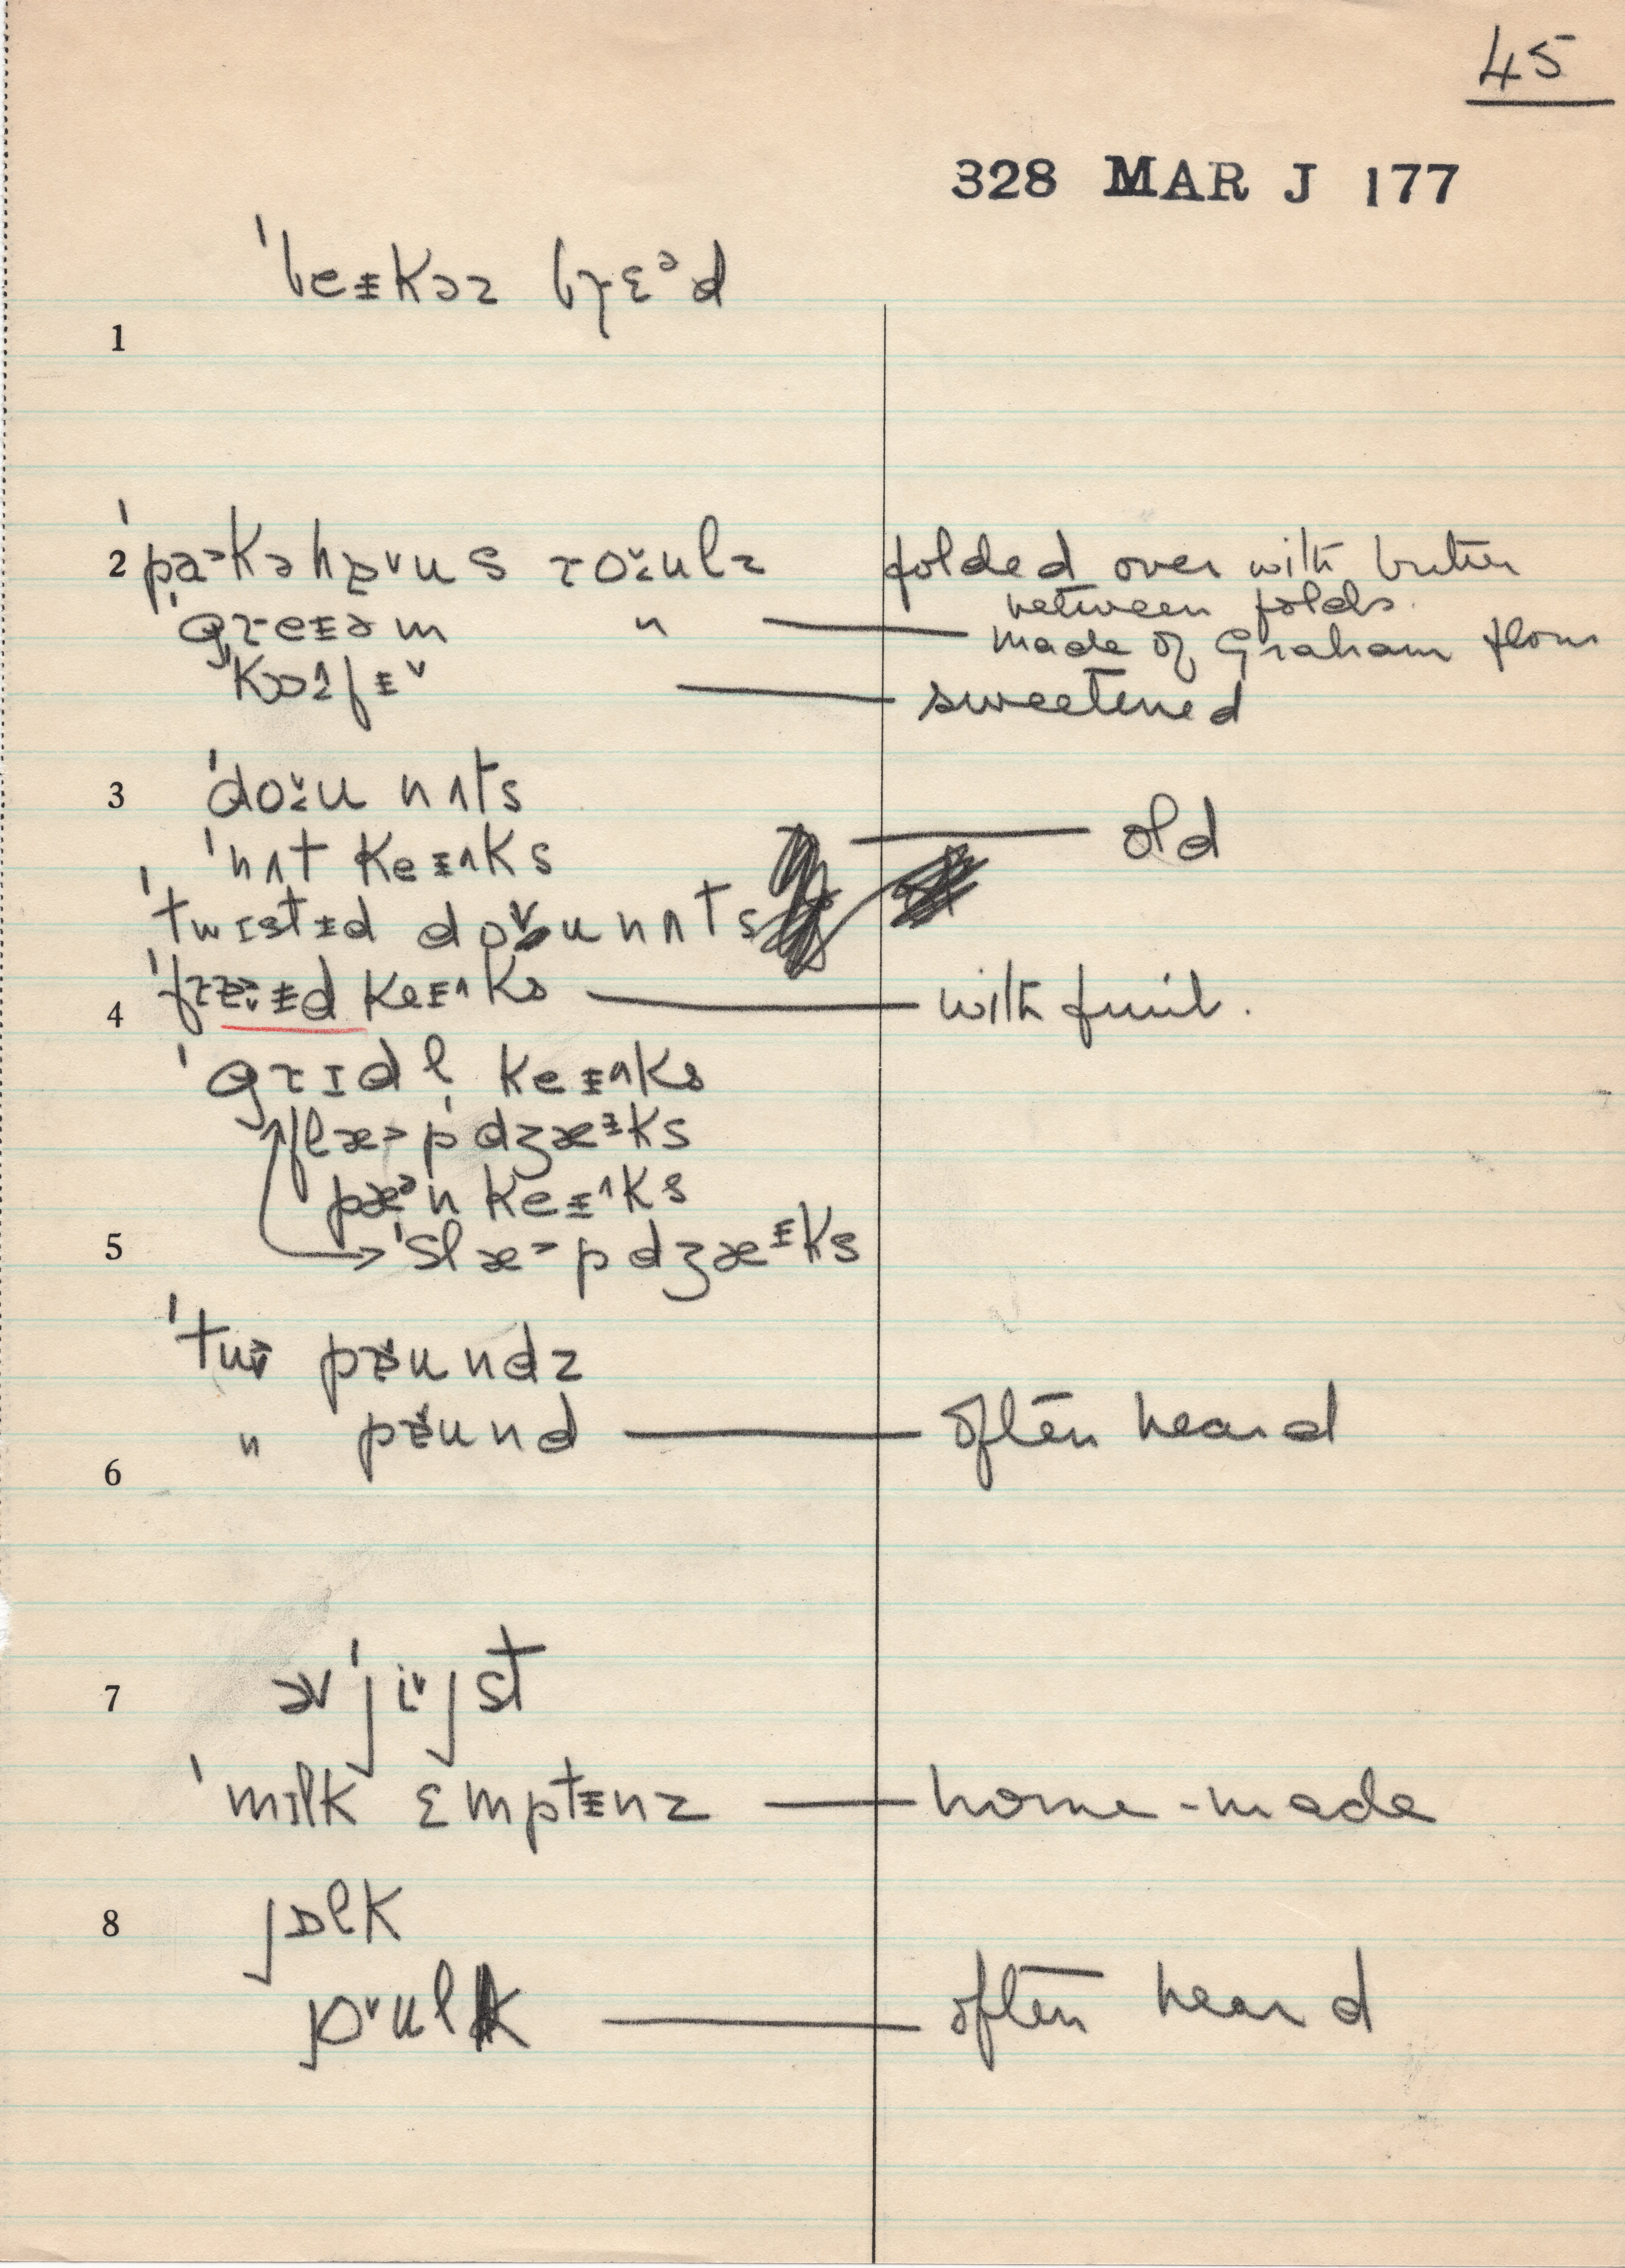 45
328 MAR J 177
ˈbeᵻkəz bɹɛᵊd
1
2 ˈpa˃kəhɒ˅us ɹo˅ulz folded over with butter
between folds.
ˈgɹeᵻəm " — made of Graham flour
ˈkɔfᵻ˅ — sweetened
3 ˈdo˅u nʌts
ˈnʌt keᵻ^ks — old
ˈtwɪstᵻd do˅u nʌts
4 keᵻ^ks — with fruit.
ˈgɹɪdl̩ keᵻ^ks
flæ˃pˈdʒæᵻks
pæᵊn keᵻ^ks
5 ˈslæ˃pdʒæᵻks
ˈtu pɒ˅undz
" pɒ˅und — often heard
6
7 əvˈji˅jst
ˈmɪlk ɛmptᵻnz — home-made
8 jɒlk
jo˅ulk — often heard